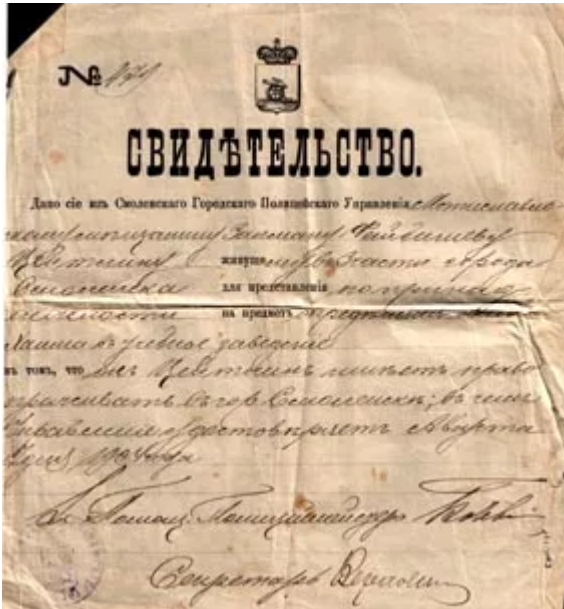 № 479
СВИДѢТЕЛЬСТВО.
Дано сіе изъ Смоленскаго Городскаго Полицейскаго Управленія Мстиславль-
скому мѣщанину Залману Файбишеву
Цейтлину живуще му въ 3 части города
Смоленска для представленія по принад
лежности на предметъ
въ учебное заведеніе
въ томъ, что онъ Цейтлинъ имѣетъ право
проживать въ гор Смоленскѣ; въ чемъ
Управленіе удостовѣряетъ Августа
дня года
Помощ. Полицiймейстера
Секретарь